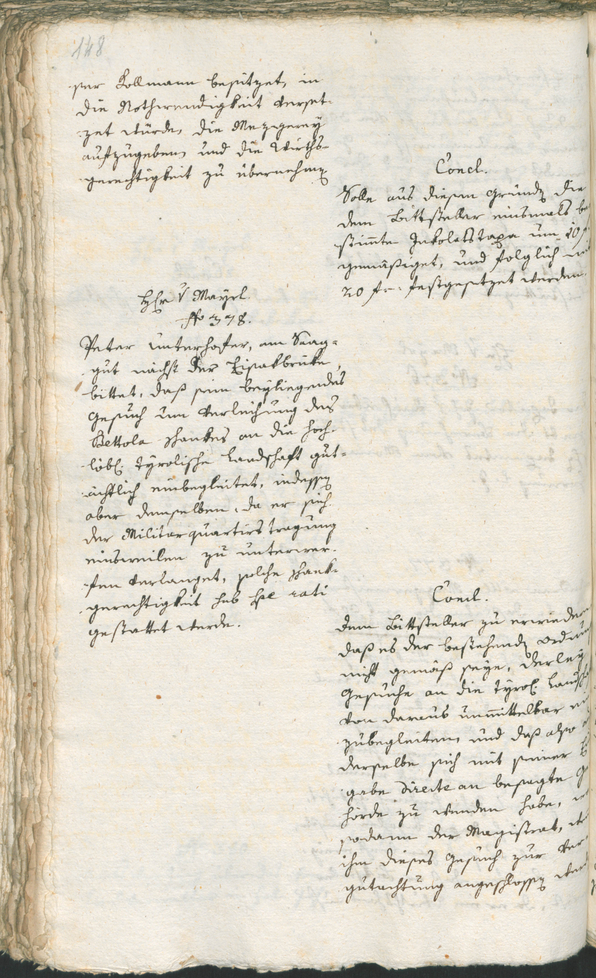 148
ser Collmann besitzet, in
die Nothwendigkeit verset-
zet würde, die Mezgerey
aufzugeben, und die Wirths-
gerechtigkeit zu übernehmen
Concl.
Solle aus diesem Grunde die
dem Bittsteller einsmals be
stimte Inkolatstaxe um 10 f
gemäßiget, und folglich
20 f: festgesetzet werden.
H: v Mayrl
No 378.
Peter Unterhofer, am Saag-
gut nächst der Eisakbruke,
bittet, daß sein beyliegendes
Gesuch um Verleihung des
Bettola schankes an die hoch-
löbl: tyrolische Landschaft gut-
ächtlich einbegleitet, indessen
aber demselben, da er sich
der Militarquartirstragung
einsweilen zu unterwer-
fen verlanget, solche Schank-
gerechtigkeit sub spe rati
gestattet werde.
Concl.
dem Bittsteller zu erwiedern
daß es der bestehenden Ordnu
nicht gemäß seye, derley
Gesuche an die tyrol: Landsch
von daraus unmittelbar
zubegleiten, und daß also
derselbe sich mit seiner
gabe directe an besagte
hörde zu wenden habe,
sodann der Magistrat,
ihm dieses Gesuch zur
gutachtung angeschlossen